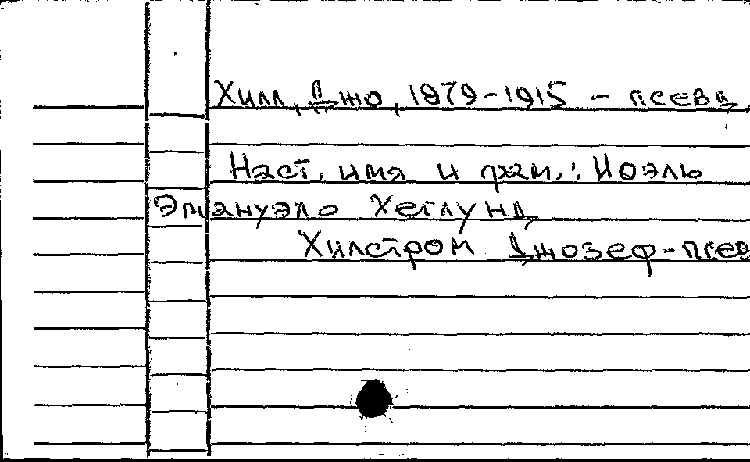 Хилл, Джо, 1879-1915 - псевд.
Наст. имя и фам.: Йоэль
Эмануэль Хеглунд
Хилстром Джозеф-псев